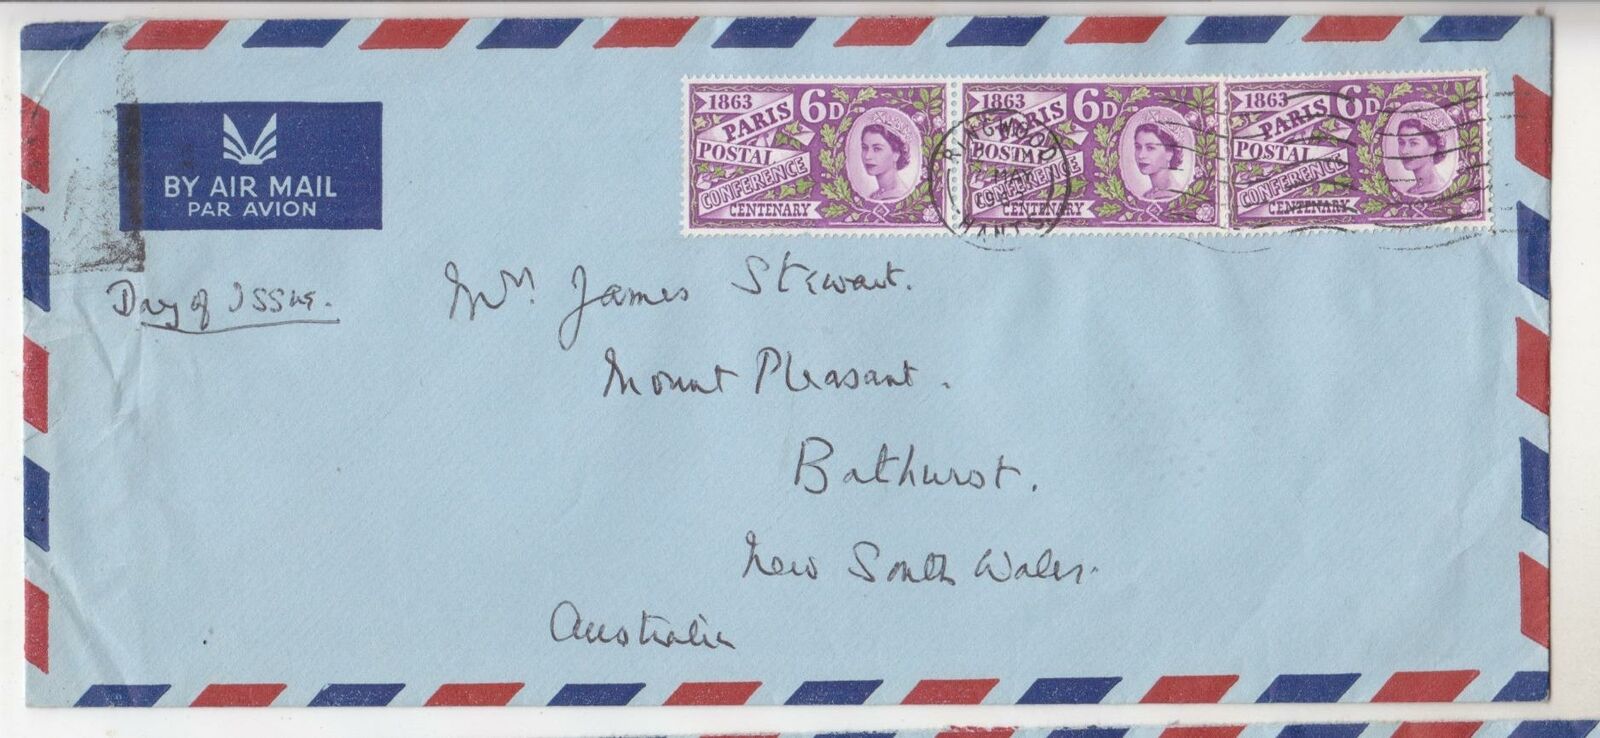 BY AIR MAIL
PAR AVION
1863
PARIS 6D
POSTAL
CONFERENCE
CENTENARY
1863
PARIS 6D
POSTAL
CONFERENCE
CENTENARY
1863
PARIS 6D
POSTAL
CONFERENCE
CENTENARY
RINGWOOD
MAY
HANTS
Day of Issue.
Mrs. James Stewart.
Mount Pleasant.
Bathurst.
New South Wales.
Australia